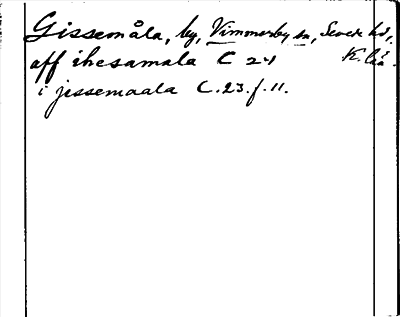 Gissemåla, by, Vimmerby sn, Sevede hd,
aff ihesamala C 24 K. län.
i jissemaala C. 23. f. 11.